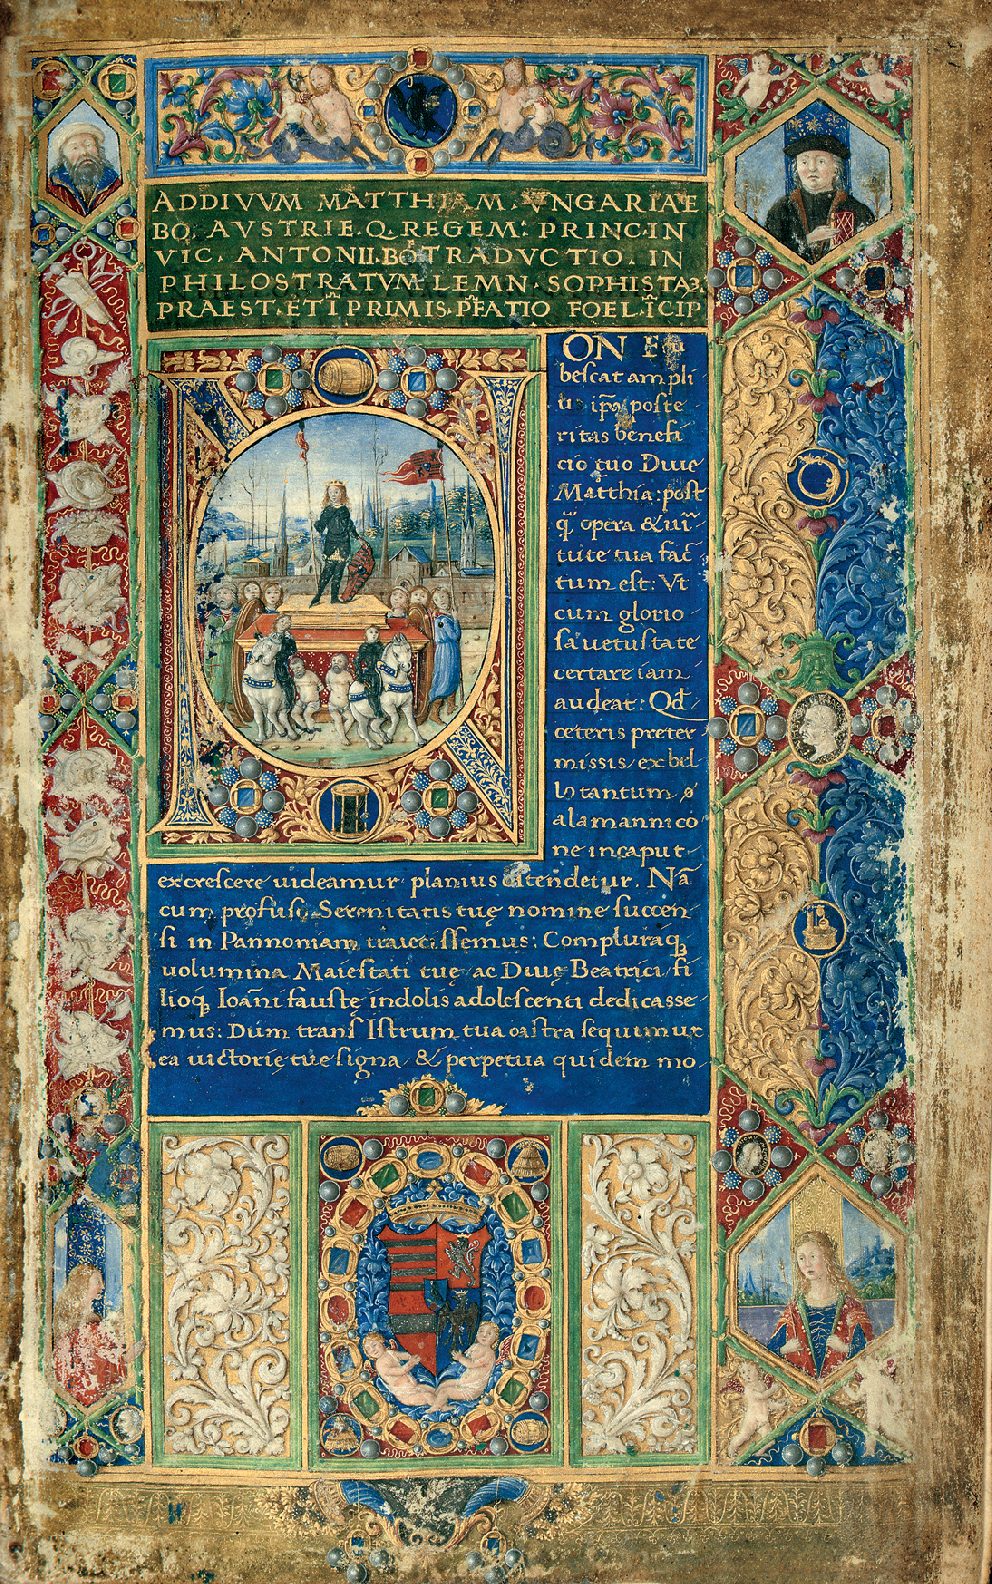 AD DIVVM MATTHIAM. VNGARIAE
BO. AVSTRIE. Q. REGEM: PRINC. IN
VIC. ANTONII. BO TRADVCTIO. IN
PHILOSTRATVM LEMN. SOPHISTA
PRAEST. ET I PRIMIS. PFATIO FOEL. ICIP
NON E
bescat ampli
us ipa poste
ritas benefi
cio tuo Diue
Matthia: post
q̃ opera & uir
tute tua fac
tum est: Vt
cum glorio
sa uetustate
certare iam
audeat: Qd
ceteris preter
missis ex bel
lo tantum
alamanni co
ne in caput
excrescere uideamur planius ostendetur. Nã
cum profuso Serenitatis tuę nomine succen
si in Pannoniam traiecissemus: Compluraq
uolumina Maiestati tuę ac Diuę Beatrici fi
lioq Ioãni faustę indolis adolescenti dedicasse
mus: Dum trans Istrum tua castra sequimur
ea uictorię tue signa & perpetua quidem mo